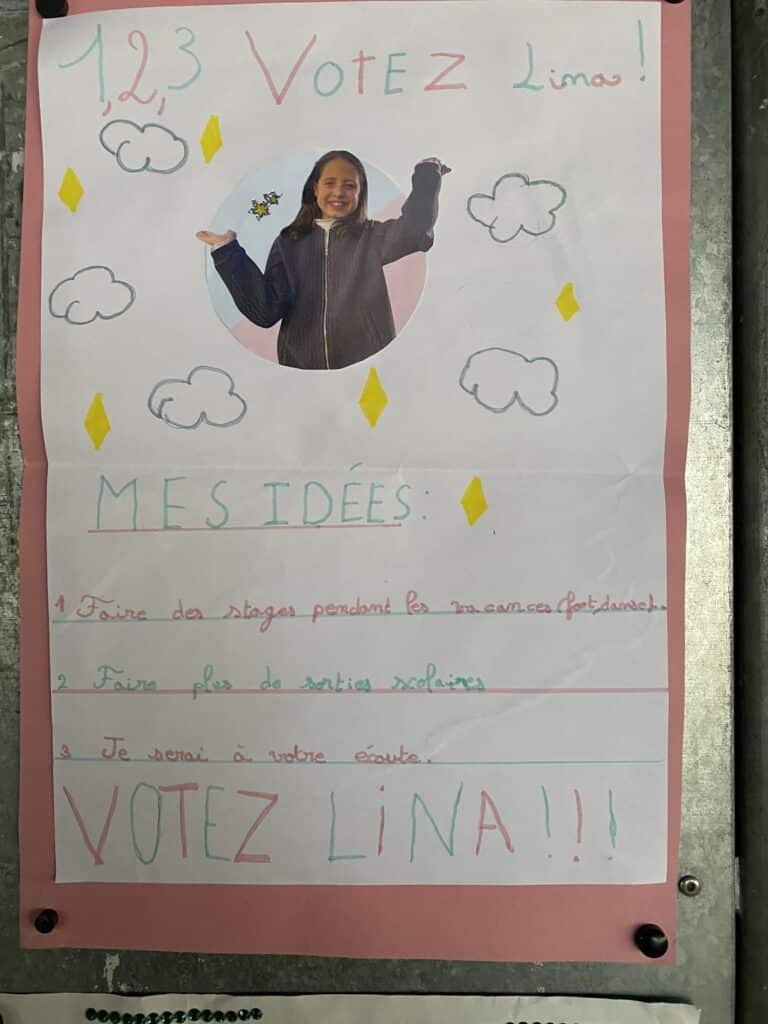 1, 2, 3 VOTEZ Lina !
MES IDÉES :
1 Faire des stages pendant les vacances (foot, danse).
2 Faire plus de sorties scolaires
3 Je serai à votre écoute.
VOTEZ LINA !!!